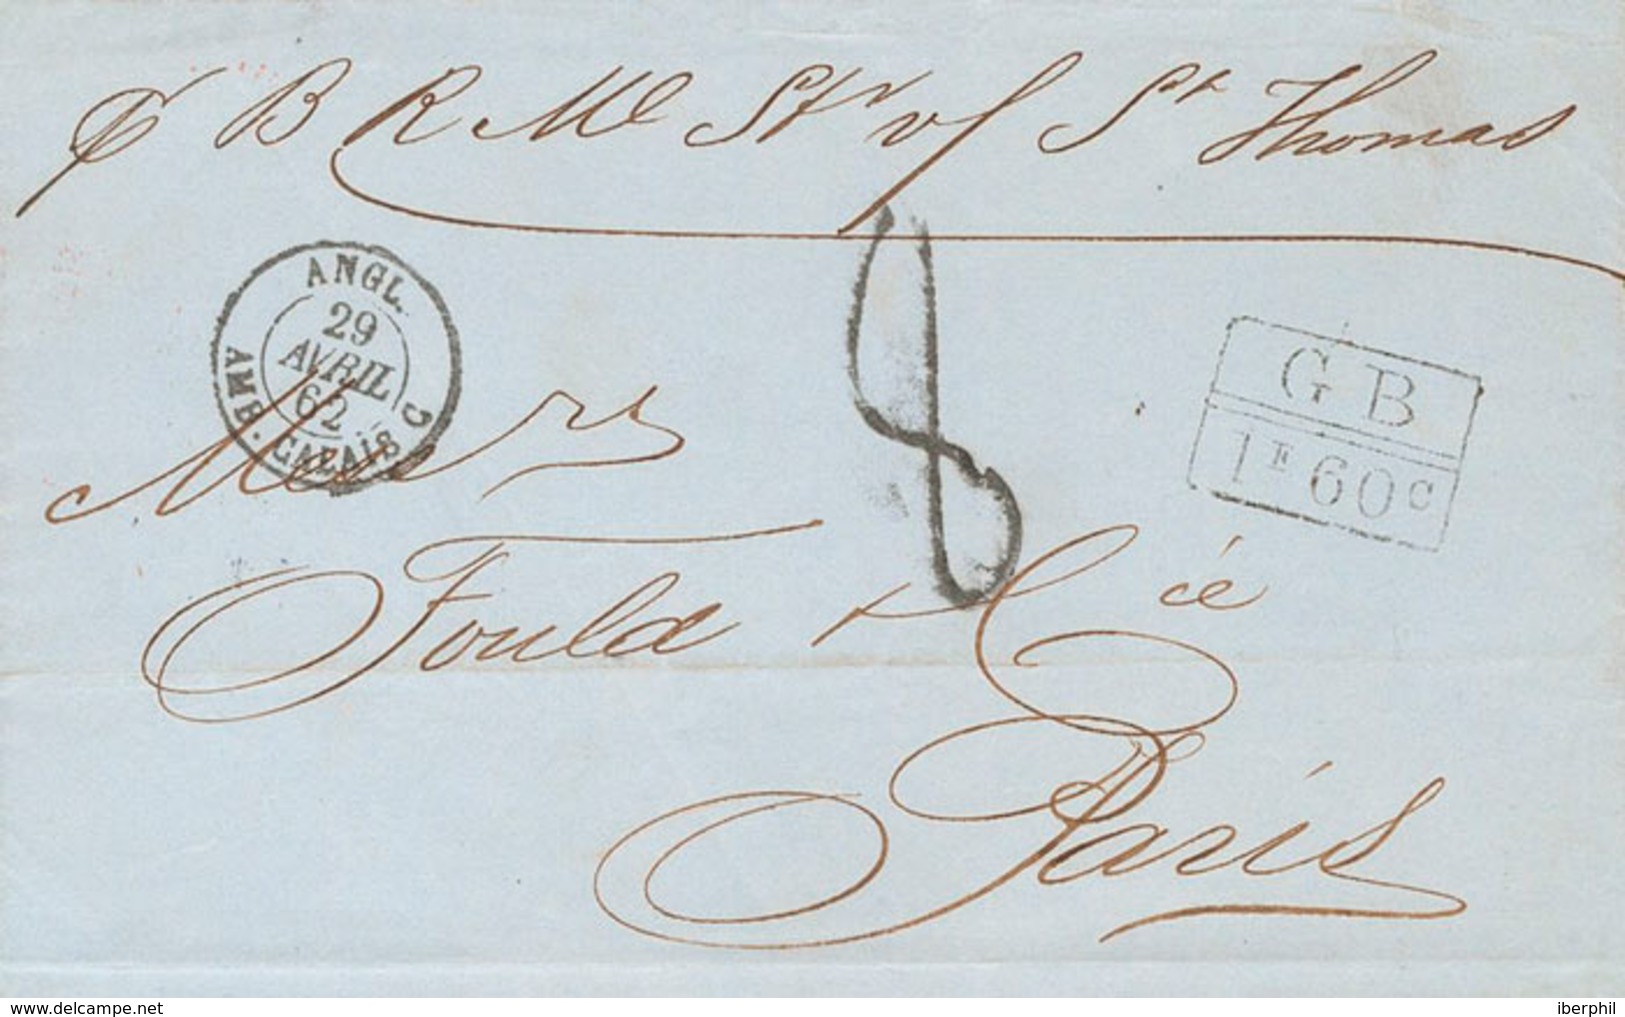 p B R Ml Str v/ St Thomas
ANGL.
29
AVRIL
62
AMB. CALAIS C
8
G B
1F 60c
Messrs
Fould & Cie
Paris
www.delcampe.net
iberphil